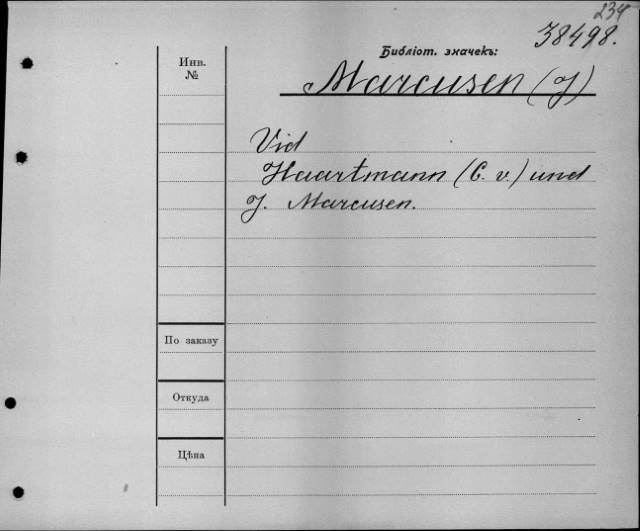 234
38498.
Библіот. значекъ:
Инв.
№
Marcusen (J)
Vid
Haartmann (C. v.) und
J. Marcusen.
По заказу
Откуда
Цѣна